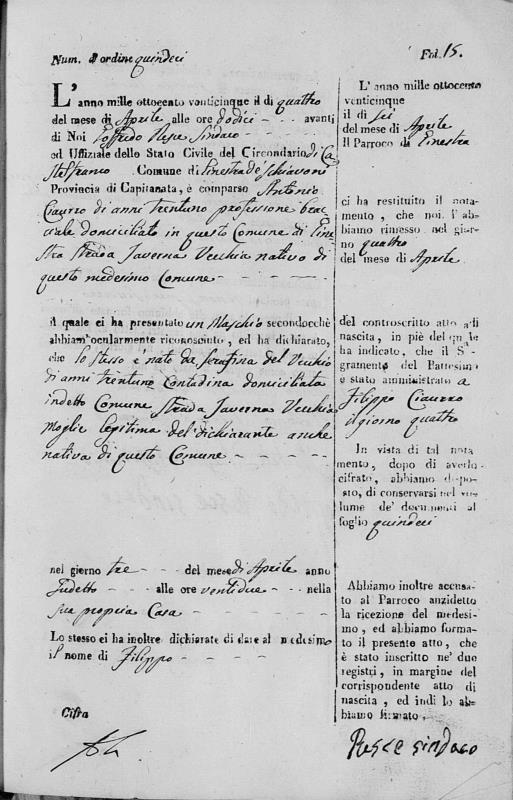 Num. d'ordine quindeci
Fol. 15.
L'anno mille ottocento venticinque il dì quattro
del mese di Aprile alle ore dodici - - - avanti
di Noi Loffredo Resce Sindaco - - -
ed Uffiziale dello Stato Civile del Circondario di Ca
stelfranco Comune di Ginestra de' Schiavoni
Provincia di Capitanata, è comparso Antonio
Ciaurro di anni trentuno professione brac
ciale domiciliato in questo Comune di Gine
stra Strada Taverna Vecchia nativo di
questo medesimo Comune - - - -
il quale ci ha presentato un Maschio secondocchè
abbiam'ocularmente riconosciuto, ed ha dichiarato,
che lo stesso è nato da Serafina del Vecchio
di anni trentuno Contadina domiciliata
indetto Comune Strada Taverna Vecchia
moglie legitima del dichiarante anche
nativa di questo Comune - - - -
nel giorno tre - - - del mese di Aprile anno
sudetto - - - alle ore ventidue - - - nella
sua propria Casa - - - -
Lo stesso ci ha inoltre dichiarato di dare al medesimo
il nome di Filippo - - - -
Cifra
L'anno mille ottocento
venticinque
il dì sei
del mese di Aprile
Il Parroco di Ginestra
ci ha restituito il nota-
mento, che noi l'ab-
biamo rimesso nel gior-
no quattro
del mese di Aprile
del controscritto atto di
nascita, in piè del quale
ha indicato, che il Sa-
gramento del Battesimo
è stato amministrato a
Filippo Ciaurro
il giorno quattro
In vista di tal nota
mento, dopo di averlo
cifrato, abbiamo dispo-
sto, di conservarsi nel vo-
lume de' documenti al
foglio quindeci
Abbiamo inoltre accusa-
to al Parroco anzidetto
la ricezione del medesi-
mo, ed abbiamo forma-
to il presente atto, che
è stato inscritto ne' due
registri, in margine del
corrispondente atto di
nascita, ed indi lo ab-
biamo firmato.
Resce sindaco